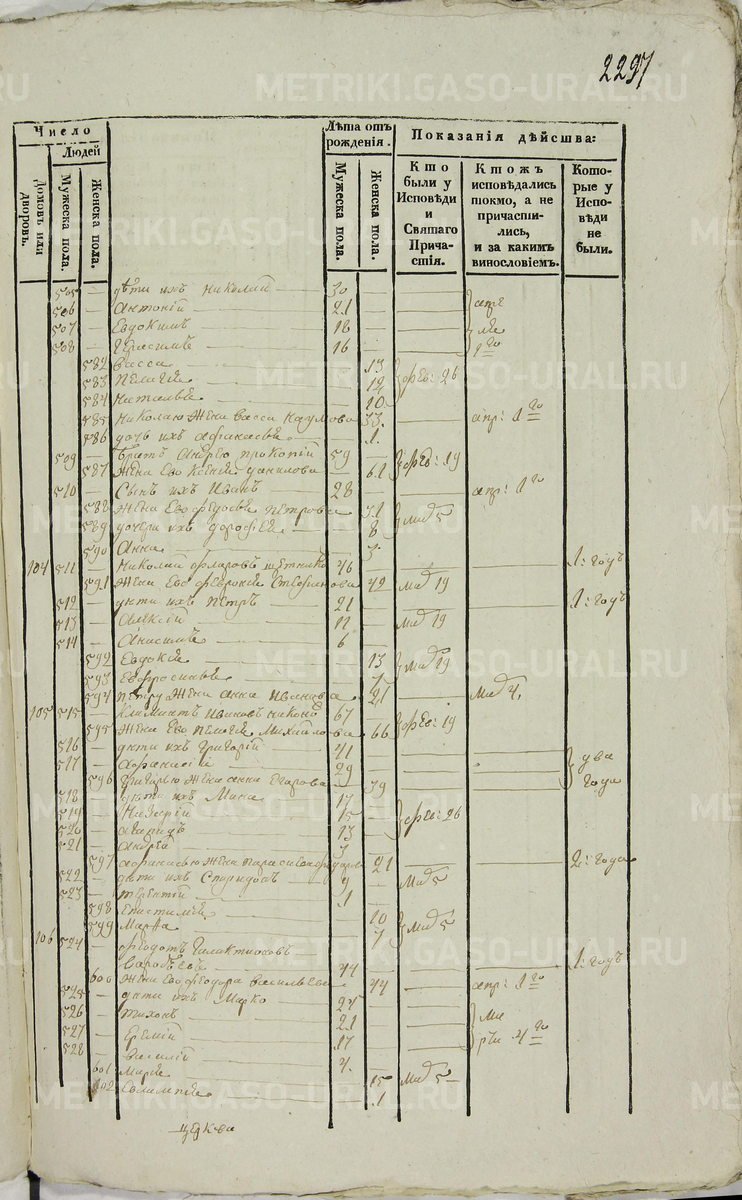 2297
METRIKI.GASO-URAL.RU
Число
Людей
Домовъ или дворовъ.
Мужеска пола.
Женска пола.
Лѣта отъ рожденія.
Мужеска пола.
Женска пола.
Показанія дѣйства:
Кто были у Исповѣди и Святаго Прича-стія.
Ктожъ исповѣдались токмо, а не причасти-лись, и за какимъ винословіемъ.
Кото-рые у Испо-вѣди не были.
505 — дѣти ихъ Николай 30
506 — Антоній 21
507 — Евдокимъ 18
508 — Герасимъ 16
582 Васса 13
583 Пелагея 12 фев: 26
584 Наталья 10
585 Николаю жена Васса Наумова 33. апр: 1го
586 дочь ихъ Афанасья 1.
509 — братъ Андрею Прокопій 59
587 жена Ево Ксенія Данилова 61 фев: 19
510 — Сынъ ихъ Иванъ 28 апр: 1го
588 жена Ево Федосья Петрова 31
589 дочери ихъ Дорофея 8 маія 5
590 Анна 3
104 511 — Николай Фларовъ 46 1: годъ
591 жена Ево Феврония Стефанова 42 маія 19
512 — дѣти ихъ Петръ 21 1: годъ
513 — Алексій 11 маія 19
514 — Анисимъ 6
592 Евдокія 13 маія 19
593 Евфросинья
594 Петру жена Анна Иванова 21 маія 4.
105 515 — Климантъ Ивановъ 67
595 жена Ево Пелагея Михайлова 66 фев: 19
516 — дѣти ихъ Григорій 41
517 — Афанасій 29 два года
596 Григорью жена Анна Егорова 39
518 — дѣти ихъ Мина 17
519 — 15
520 — 13 фев: 26
521 — Андрей 3
597 Афанасью жена Парасковья 21 2: года
522 — дѣти ихъ Спиридонъ 9 маія 5
523 — Терентій 1
598 Епистимея 10
599 Марѳа 7 маія 5
106 524 — Федотъ Галактіоновъ
44 1: годъ
600 жена Ево Федора Васильева 44 апр: 1го
525 — дѣти ихъ Марко 24
526 — Тихонъ 21
527 — Еремій 17
528 — Василій 4.
601 Марья 15 маія 5
602 1
церкви